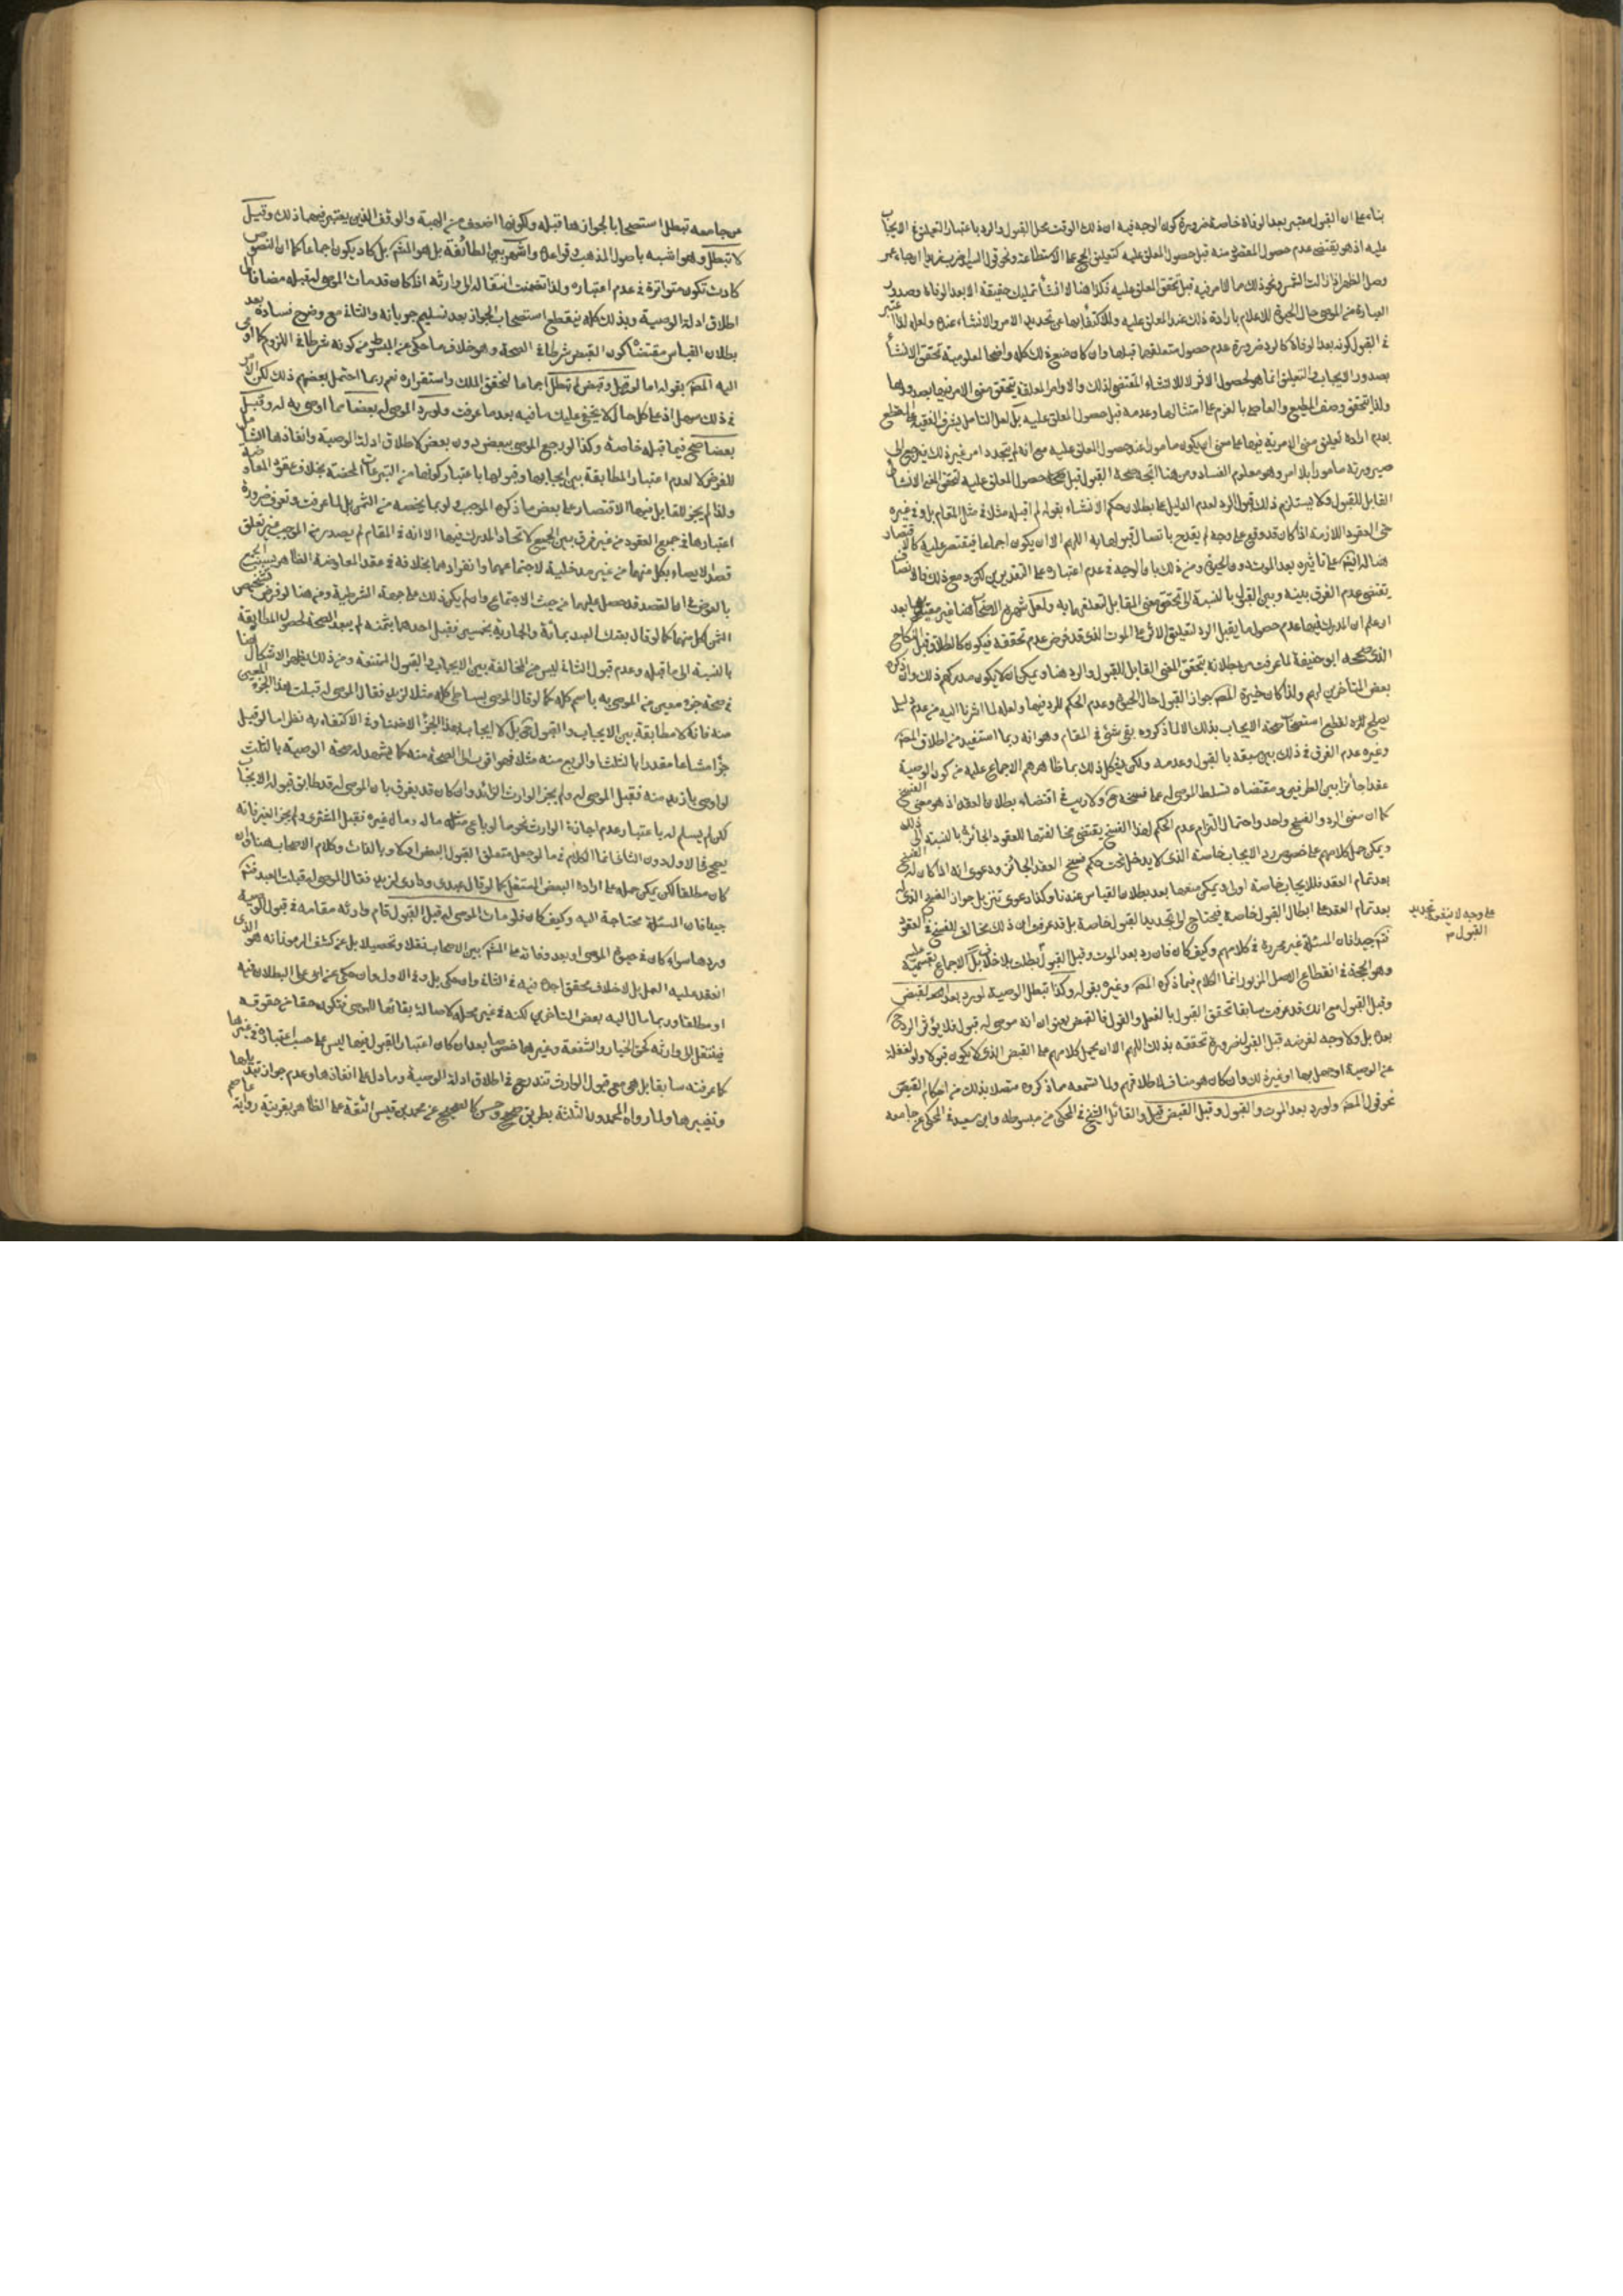 بناء على ان القبول معتبر بعد الوفاة خاصة ضرورة كون الوجه فيه ان ذلك الوقت محل القبول والرد باعتبار التعليق في الايجاب
عليه اذ هو يقتضى عدم حصول المقتضى منه قبل حصول المعلق عليه كتعليق الحج على الاستطاعة ونحو قول السيد
وصل الظهر اذا زالت الشمس ونحو ذلك مما لا امر فيه قبل تحقق المعلق عليه فكذا هنا لا انشاء تمليك حقيقة الا بعد الوفاة وصدور
العبارة من الموصى حال الحيوة للاعلام بارادة ذلك عند المعلق عليه وللاكتفاء بها عن تجديد الامر والانشاء عنده ولعله لذا اعتبر
في القبول كونه بعد الوفاة كالرد ضرورة عدم حصول متعلقهما قبلها وان كان ضعف ذلك كله واضحا لمعلومية تحقق الانشاء
بصدور الايجاب والتعليق انما هو لحصول الاثر لا للانشاء المقتضى لذلك والاوامر المعلقة يتحقق معنى الامر فيها بصدورها
ولذا تتحقق وصف المطيع والعاصى بالعزم على امتثالها وعدمه قبل حصول المعلق عليه بل لعل التأمل
بعدم ارادة تعليق معنى الامرية فيها على معنى ان يكون مأمورا عند حصول المعلق عليه مع انه لم يتجدد امر غيره ذلك
صيرورته مأمورا بلا امر وهو معلوم الفساد ومن هنا اتجه صحة القبول قبل حصول المعلق عليه لتحقق الانشاء
القابل للقبول ولا يستلزم ذلك قبول الرد لعدم الدليل على بطلان حكم الانشاء بقوله لم اقبله مثلا في مثل المقام بل وفي غيره
حتى العقود اللازمة اذا كان قد وقع على وجه لم يقدح باتصال قبولها به اللهم الا ان يكون اجماعا فيقتصر عليه
يقتضى عدم الفرق بينه وبين القبول بالنسبة الى تحقق معنى المقابل لتعلقهما به ولعل شهرة الاصحاب هنا
الذي صححه ابو حنيفة لما عرفت من بطلانه بتحقق المعنى القابل للقبول والرد هنا ويمكن ان لا يكون مدركهم ذلك وان ذكره
بعض المتأخرين لهم ولذا كان خيرة المصنف جواز القبول حال الحيوة وعدم الحكم للرد فيها ولعله لما اشرنا اليه من عدم دليل
يصلح للرد لقطع استصحاب صحة الايجاب بذلك لا لما ذكروه بقى شئ في المقام وهو انه ربما استفيد من اطلاق المصنف
وغيره عدم الفرق في ذلك بين سبقه بالقبول وعدمه ولكن يشكل ذلك بما ظاهرهم الاجماع عليه من كون الوصية
عقدا جائزا بين الطرفين ومقتضاه تسلط الموصى له على فسخه ولا ريب في اقتضاء بطلان العقد اذ هو معنى الفسخ
كما ان معنى الرد والفسخ واحد واحتمال التزام عدم الحكم لهذا الفسخ يقتضى مخالفتها للعقود الجائزة بالنسبة الى ذلك
ويمكن حمل كلامهم على خصوص رد الايجاب خاصة الذي لا يدخل تحت حكم فسخ العقد الجائز ودعوى انه اذا كان له الفسخ
بعد تمام العقد فللايجاب خاصة اولى ويمكن منعها بعد بطلان القياس عندنا وكذا دعوى تنزيل جواز الفسخ الذي
بعد تمام العقد على ابطال القبول خاصة فيحتاج الى تجديد القبول خاصة بل قد عرفت ان ذلك مخالف للفسخ في العقود
فتأمل جيدا فان المسئلة غير محررة في كلامهم وكيف كان فان رد بعد الموت وقبل القبول بطلت بلا خلاف بل الاجماع بقسميه عليه
وهو الحجة في انقطاع الاصل المزبور انما الكلام فيما ذكره المصنف وغيره بقوله وكذا تبطل الوصية لو رد بعد القبض
وقبل القبول مع انك قد عرفت سابقا تحقق القبول بالفعل والقول فالقبض بعنوان انه موصى له قبول فلا يؤثر الرد
بعده بل ولا وجه لفرضه قبل القبول ضرورة تحققه بذلك اللهم الا ان يحمل كلامهم على القبض الذي لا يكون قبولا ولو لغفلة
عن الوصية او جهل بها او غير ذلك وان كان هو مناف لاطلاقهم ولما تسمعه مما ذكروه متصلا بذلك من احكام القبض
نحو قول المصنف ولو رد بعد الموت والقبول وقبل القبض قيل والقائل الشيخ في المحكى من مبسوطه وابن سعيد في المحكى عن جامعه
على وجه لا ينفع تجديد
القبول
عن جامعه تبطل استصحابا لجوازها قبله ولكونها اضعف من الهبة والوقف الذين يعتبر فيهما ذلك وقيل
لا تبطل وهو اشبه باصول المذهب وقواعده واشهر بين الطائفة بل هو المشهور بل كاد يكون اجماعا كما ان النصوص
كادت تكون متواترة في عدم اعتباره ولذا تضمنت انتقاله الى وارثه اذا كان قد مات الموصى له قبله مضافا الى
اطلاق ادلة الوصية وبذلك كله ينقطع استصحاب الجواز بعد تسليم جريانه والثاني مع وضوح فساده بعد
بطلان القياس مقتضاه كون القبض شرطا في الصحة وهو خلاف ما حكى عن المبسوط من كونه شرطا في اللزوم كما اومى
اليه المصنف بقوله اما لو قبل وقبض لم تبطل اجماعا لتحقق الملك واستقراره نعم ربما احتمل بعضهم ذلك لكن الامر
في ذلك سهل اذ على كل حال لا يخفى عليك ما فيه بعد ما عرفت ولو رد الموصى له بعضا مما اوصى به له وقبل
بعضا صح فيما قبله خاصة وكذا لو رجع الموصى ببعض دون بعض لاطلاق ادلة الوصية وانفاذها الشامل
للفرض لا لعدم اعتبار المطابقة بين ايجابها وقبولها باعتبار كونها من التبرعات المحضة بخلاف عقود المعاوضة
ولذا لم يجز للقابل فيها الاقتصار على بعض ما ذكره الموجب ولو بما يخصه من الثمن بل لما عرفت وتعرف ضرورة
اعتبارها في جميع العقود من غير فرق بين الجميع لاتحاد المدرك فيها الا انه في المقام لم يصدر من الموجب غير تعلق
قصد الايصاء بكل منهما من غير مدخلية لاجتماعهما وانفرادهما بخلافه في عقد المعاوضة
بالعوض اما القصد قد حصل عليهما من حيث الاجتماع وان لم يكن ذلك على جهة الشرطية ومن هنا لو فرض تشخيص
الثمن لكل منهما كما لو قال بعتك العبد بمائة والجارية بخمسين فقبل احدهما بثمنه لم يبعد الصحة لحصول المطابقة
بالنسبة الى ما قبله وعدم قبول الثاني ليس من المخالفة بين الايجاب والقبول الممتنعة ومن ذلك يظهر الاشكال هنا
في صحة جزء معين من الموصى به باسم كله كما لو قال الموصى بساطى كله مثلا لزيد فقال الموصى له قبلت هذا الجزء المعين
منه فانه لا مطابقة بين الايجاب والقبول بل لا ايجاب لهذا الجزء الا ضمنا وفي الاكتفاء به نظر اما لو قبل
جزءا مشاعا مقدرا بالثلث او الربع منه مثلا فهو اقرب الى الصحة منه كما يشهد له صحة الوصية بالثلث
لو اوصى بازيد منه فقبل الموصى له ولم يجز الوارث الزائد وان كان قد يفرق بان الموصى له قد طابق قبوله الايجاب
لكن لم يسلم له باعتبار عدم اجازة الوارث نحو ما لو باع مثلا ماله ومال غيره فقبل المشترى ولم يجز الغير فانه
يصح في الاول دون الثاني انما الكلام في ما لو جعل متعلق القبول البعض
كان مطلقا لكن يمكن حمله على ارادة البعض المستقل كما لو قال عبدى ودارى لزيد فقال الموصى له قبلت العبد فتأمل
جيدا فان المسئلة محتاجة اليه وكيف كان فلو مات الموصى له قبل القبول قام وارثه مقامه في قبول الوصية
وردها سواء كان في حيوة الموصى او بعد وفاته على المشهور بين الاصحاب نقلا وتحصيلا بل عن كشف الرموز انه هو الذي
انعقد عليه العمل بل لا خلاف محقق اجده فيه في الثاني وان حكى بل وفي الاول وان حكى عن ابى على البطلان فيه
او مطلقا وربما مال اليه بعض المتأخرين لكنه في غير محله لاصالة بقائها للوصى فتكون حقا من حقوقه
فينتقل الى وارثه كحق الخيار والشفعة وغيرهما خصوصا بعد ان كان اعتبار القبول فيها ليس على حسب اعتباره في غيرها
كما عرفته سابقا بل هي مع قبول الوارث تندرج في اطلاق ادلة الوصية وما دل على انفاذها وعدم جواز تبديلها
وتغييرها ولما رواه المحمدون الثلثة بطريق صحيح وحسن كالصحيح عن محمد بن قيس الثقة على الظاهر بقرينة رواية عاصم